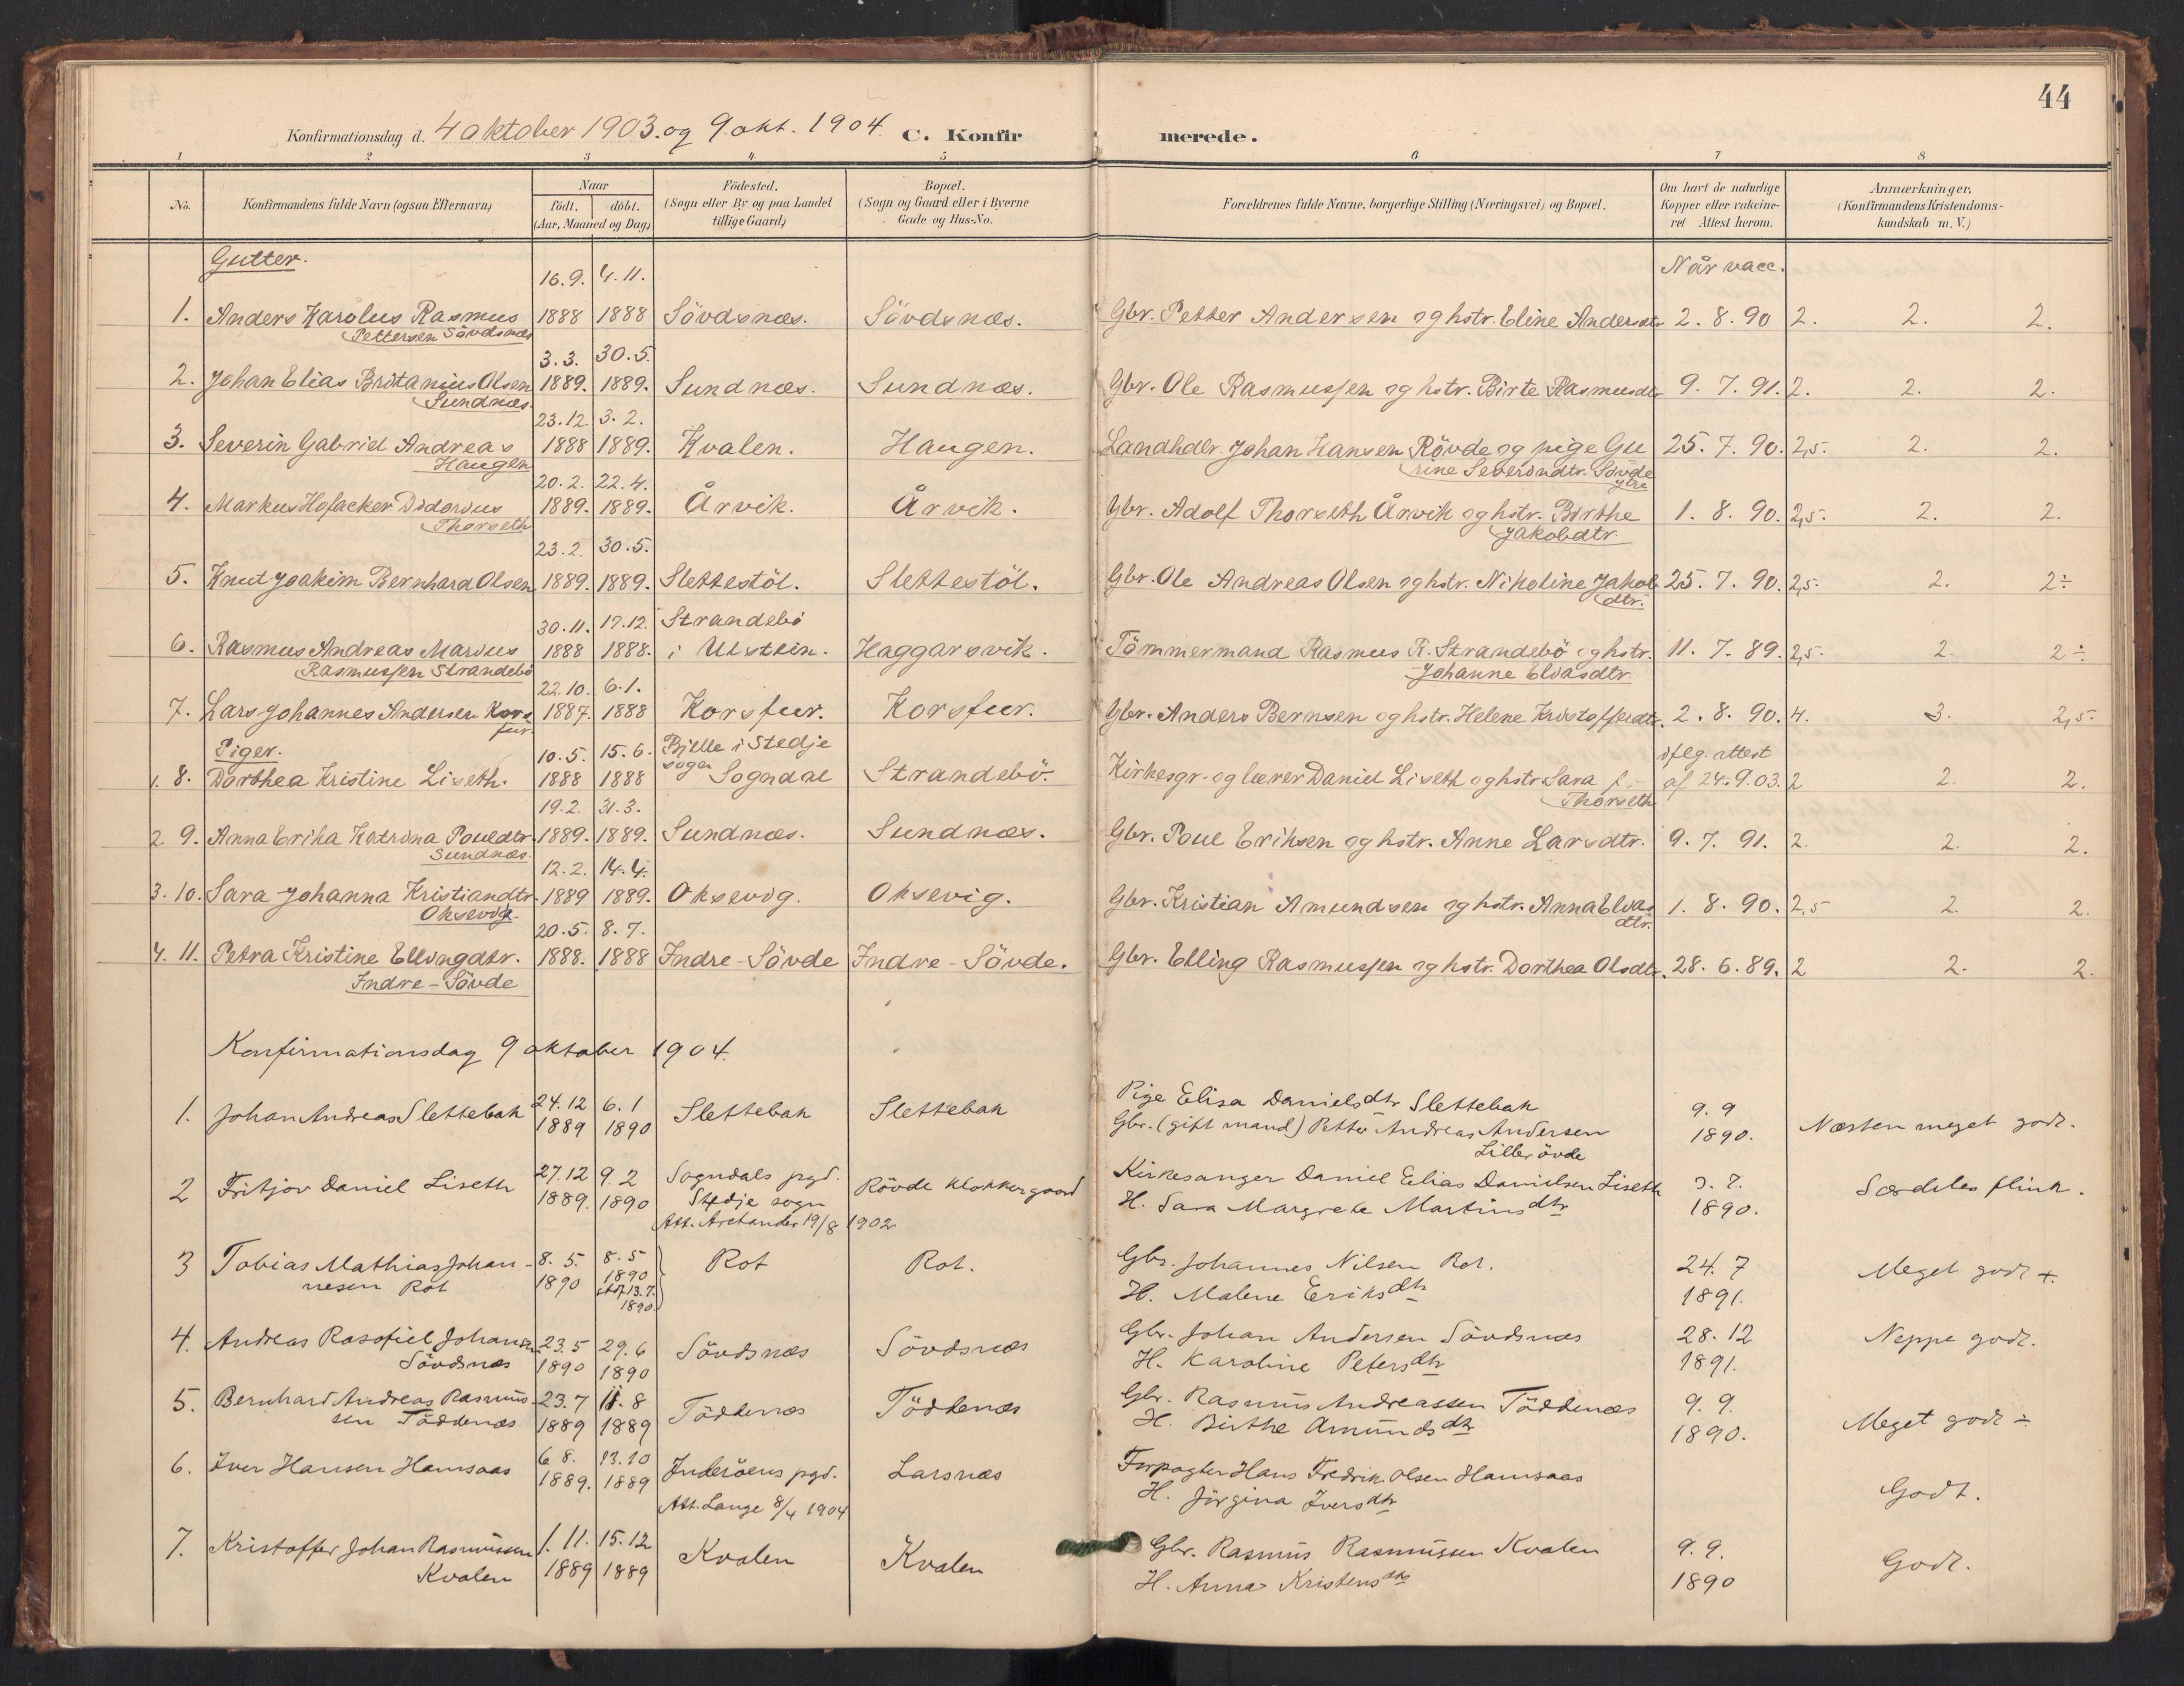 44
Konfirmationsdag d. 4 oktober 1903. og 9 okt. 1904. C. Konfirmerede.
1 2 3 4 5 6 7 8
No.
Konfirmandens fulde Navn (ogsaa Efternavn)
Naar
født. døbt.
(Aar, Maaned og Dag)
Födested.
(Sogn eller By og paa Landet
tillige Gaard)
Bopæl.
(Sogn og Gaard eller i Byerne
Gade og Hus-No.
Forældrenes fulde Navne, borgerlige Stilling (Næringsvei) og Bopæl.
Om havt de naturlige
Kopper eller vakcine-
ret Attest herom.
Anmærkninger,
(Konfirmandens Kristendoms-
kundskab m. V.)
Gutter.
Når vacc.
16.9. 4.11.
1. Anders Karolus Rasmus 1888 1888 Sövdsnæs. Sövdsnæs. Gbr. Petter Andersen og hstr. Eline Andersdtr. 2. 8. 90 2. 2. 2.
Pettersen Sövdsnæs
3.3. 30.5.
2. Johan Elias Britanius Olsen 1889. 1889. Sundnæs. Sundnæs. Gbr. Ole Rasmussen og hstr. Birte Rasmusdtr 9. 7. 91. 2. 2. 2.
Sundnæs.
23.12. 3.2.
3. Severin Gabriel Andreas 1888 1889. Kvalen. Haugen. Landhdlr. Johan Hansen Rövde og pige Gu 25. 7. 90. 2,5. 2. 2.
Haugen rine Severindtr. Sövde
ytre
20.2. 22.4.
4. Markus Hofacker Didorius 1889. 1889. Årvik. Årvik. Gbr. Adolf Thorseth Årvik og hstr. Birthe 1. 8. 90. 2,5. 2. 2.
Thorseth Jakobdtr.
23.2. 30.5.
5. Knut Joakim Bernhard Olsen 1889. 1889. Slettestöl. Slettestöl. Gbr. Ole Andreas Olsen og hstr. Nikoline Jakob 25. 7. 90. 2,5. 2. 2÷
dtr.
30.11. 17.12. Strandebö
6. Rasmus Andreas Marius 1888 1888. i Ulstein. Haggarsvik. Tömmermand Rasmus R. Strandebö og hstr. 11. 7. 89. 2,5. 2. 2÷
Rasmussen Strandebö Johanne Eliasdtr.
22.10. 6.1.
7. Lars Johannes Andersen Kors 1887. 1888 Korsfur. Korsfur. Gbr. Anders Bernsen og hstr. Helene Kristoffersdtr. 2. 8. 90. 4. 3. 2,5.
fur.
Piger. 10.5. 15.6. Bjelle i Stedje iflg. attest
sogn
1. 8. Dorthea Kristine Liseth. 1888 1888 Sogndal Strandebö. Kirkesgr. og lærer Daniel Liseth og hstr. Sara f. af 24.9.03. 2 2. 2.
Thorseth
19.2. 31.3.
2 9. Anna Erika Katrina Pouldtr. 1889. 1889. Sundnæs. Sundnæs. Gbr. Poul Eriksen og hstr. Anne Larsdtr. 9. 7. 91. 2. 2. 2.
Sundnæs.
12.2. 14.4.
3. 10. Sara Johanna Kristiandtr. 1889 1889. Oksevig. Oksevig. Gbr. Kristian Amundsen og hstr. Anna Elias 1. 8. 90. 2,5 2. 2.
Oksevig. dtr.
20.5. 8.7.
4. 11. Petra Kristine Ellingdtr. 1888. 1888 Indre-Sövde Indre-Sövde. Gbr. Elling Rasmussen og hstr. Dorthea Olsdtr. 28. 6. 89. 2 2. 2.
Indre-Sövde
Konfirmationsdag 9 oktober 1904.
24.12 6.1 Pige Elisa Danielsdtr Slettebak 9. 9
1. Johan Andreas Slettebak 1889 1890 Slettebak Slettebak Gbr. (gift mand) Petter Andreas Andersen 1890. Næsten meget godt.
Lillerövde
27.12 9.2 Sogndals pgd. Kirkesanger Daniel Elias Danielsen Liseth 3. 7.
2 Fritjov Daniel Liseth 1889. 1890 Stedje sogn Rövde klokkergaard H. Sara Margrete Martinsdtr 1890. Særdeles flink.
Att. Arctander 19/8 1902
3 Tobias Mathias Johan- 8.5. 8.5 Rot Rot. Gbr. Johannes Nilsen Rot. 24. 7 Meget godt +.
nesen Rot 1890 1890 H. Malene Eriksdtr 1891.
stadf. 13.7.
1890.
4. Andreas Rasofiel Johansen 23.5 29.6 Sövdsnæs Sövdsnæs Gbr. Johan Andersen Sövdsnæs 28. 12 Neppe godt.
Sövdsnæs 1890 1890 H. Karoline Petersdtr 1891.
5. Bernhard Andreas Rasmus- 23.7 11.8 Töddenæs Töddenæs Gbr. Rasmus Andreassen Töddenæs 9. 9. Meget godt ÷
sen Töddenæs 1889 1889 H. Birthe Amundsdtr 1890.
6. Iver Hansen Hamsaas 6 8. 13.10 Inderöens pgd. Larsnæs Forpagter Hans Fredrik Olsen Hamsaas Godt.
1889. 1889 Att. Lange 8/4 1904 H. Jörgina Iversdtr
7. Kristoffer Johan Rasmussen 1.11. 15.12 Kvalen Kvalen Gbr. Rasmus Rasmussen Kvalen 9. 9. Godt.
Kvalen 1889 1889 H. Anna Kristensdtr 1890